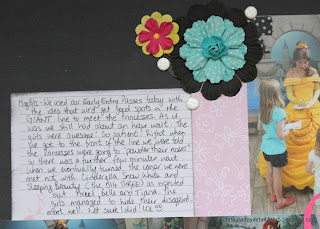 May 8/12 - We used our Early Entry Passes today with
the idea that we'd get good spots in the
GIANT line to meet the Princesses. As it
was we still had about an hour wait. The
girls were awesome! So patient! Right when
we got to the front of the line we were told
the Princesses were going to "powder their noses"
so there was a further few minutes wait.
When we eventually turned the corner we were
met not with Cinderella, Snow White and
Sleeping Beauty (the BIG THREE) as expected
but Merida, Belle and Tiana. The
girls managed to hide their disappoint-
ment well. Not sure I did LOL